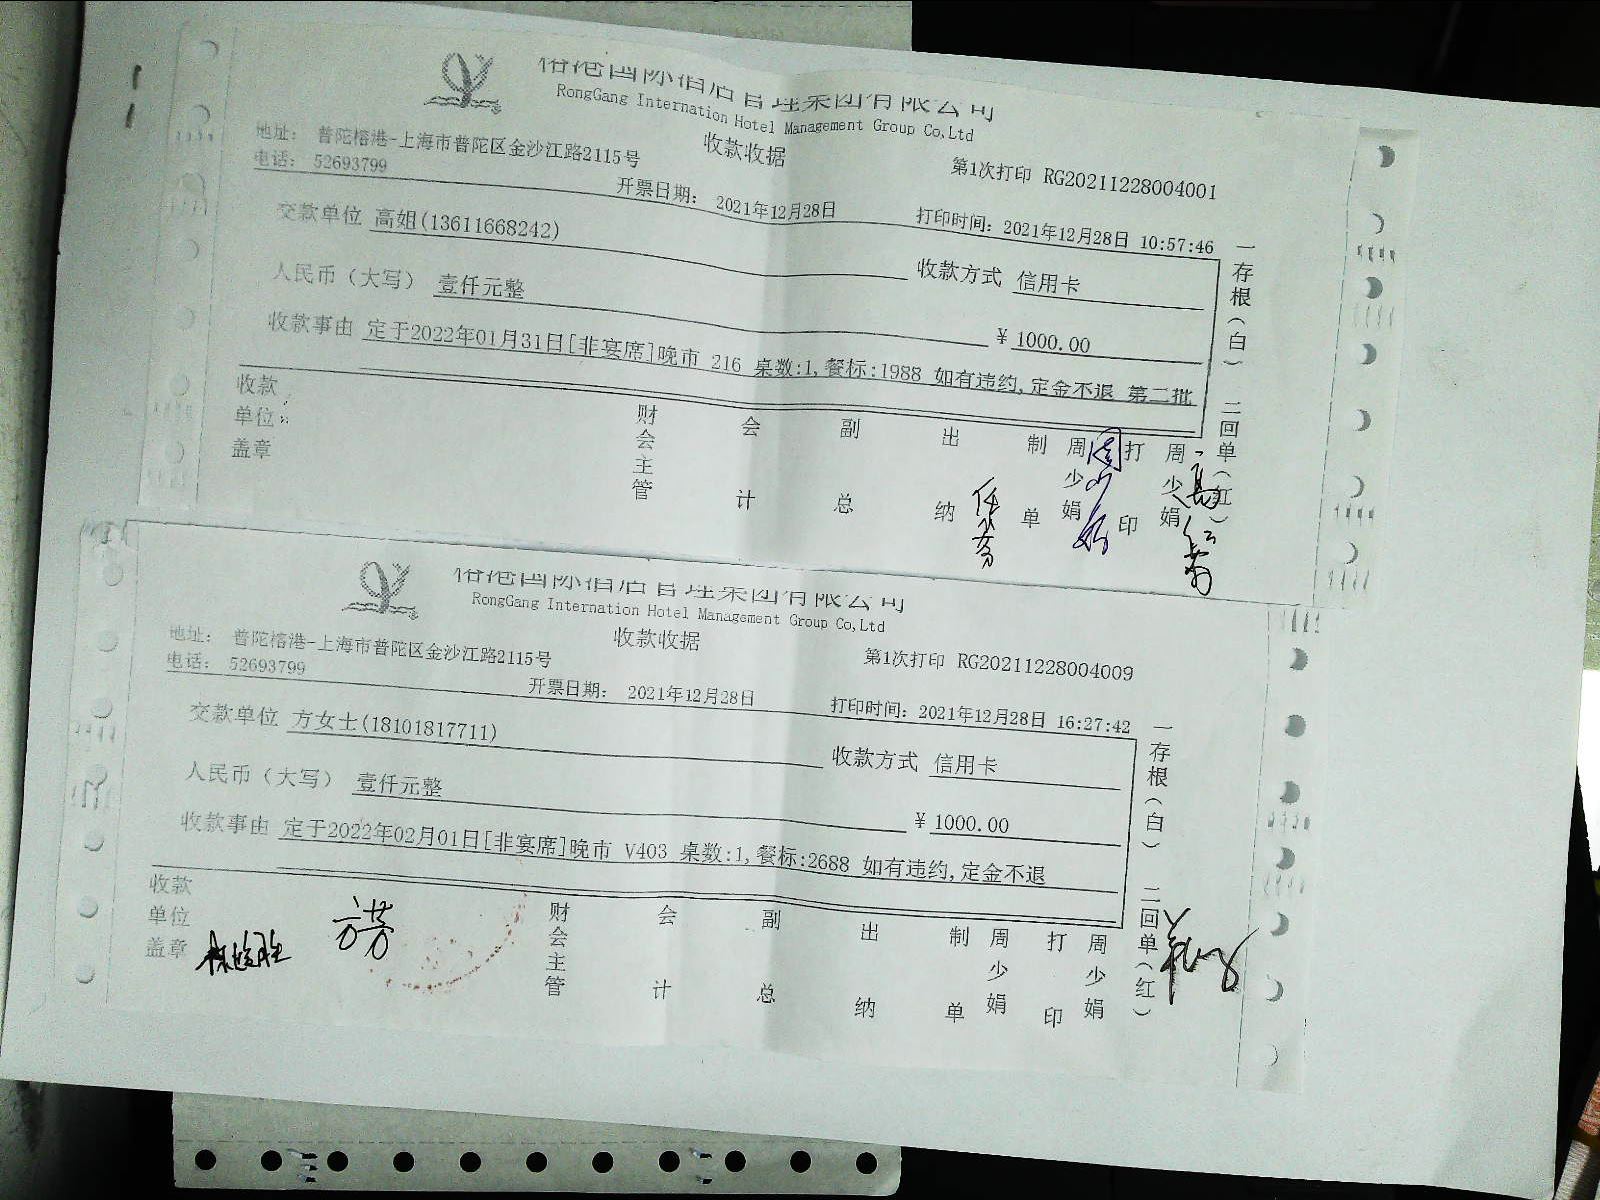 榕港国际酒店管理集团有限公司
RongGang Internation Hotel Management Group Co,Ltd
收款收据
地址： 普陀榕港-上海市普陀区金沙江路2115号
电话： 52693799
第1次打印 RG20211228004001
开票日期： 2021年12月28日
打印时间：2021年12月28日 10:57:46
交款单位 高姐(13611668242)
收款方式 信用卡
人民币（大写） 壹仟元整
￥ 1000.00
收款事由 定于2022年01月31日[非宴席]晚市 216 桌数:1,餐标:1988 如有违约,定金不退 第二批
收款单位：盖章
财会主管 会计 副总 出纳 制单 周少娟 打印 周少娟
一存根（白） 二回单（红）
榕港国际酒店管理集团有限公司
RongGang Internation Hotel Management Group Co,Ltd
收款收据
地址： 普陀榕港-上海市普陀区金沙江路2115号
电话： 52693799
第1次打印 RG20211228004009
开票日期： 2021年12月28日
打印时间：2021年12月28日 16:27:42
交款单位 方女士(18101817711)
收款方式 信用卡
人民币（大写） 壹仟元整
￥ 1000.00
收款事由 定于2022年02月01日[非宴席]晚市 V403 桌数:1,餐标:2688 如有违约,定金不退
收款单位盖章
财会主管 会计 副总 出纳 制单 周少娟 打印 周少娟
一存根（白） 二回单（红）